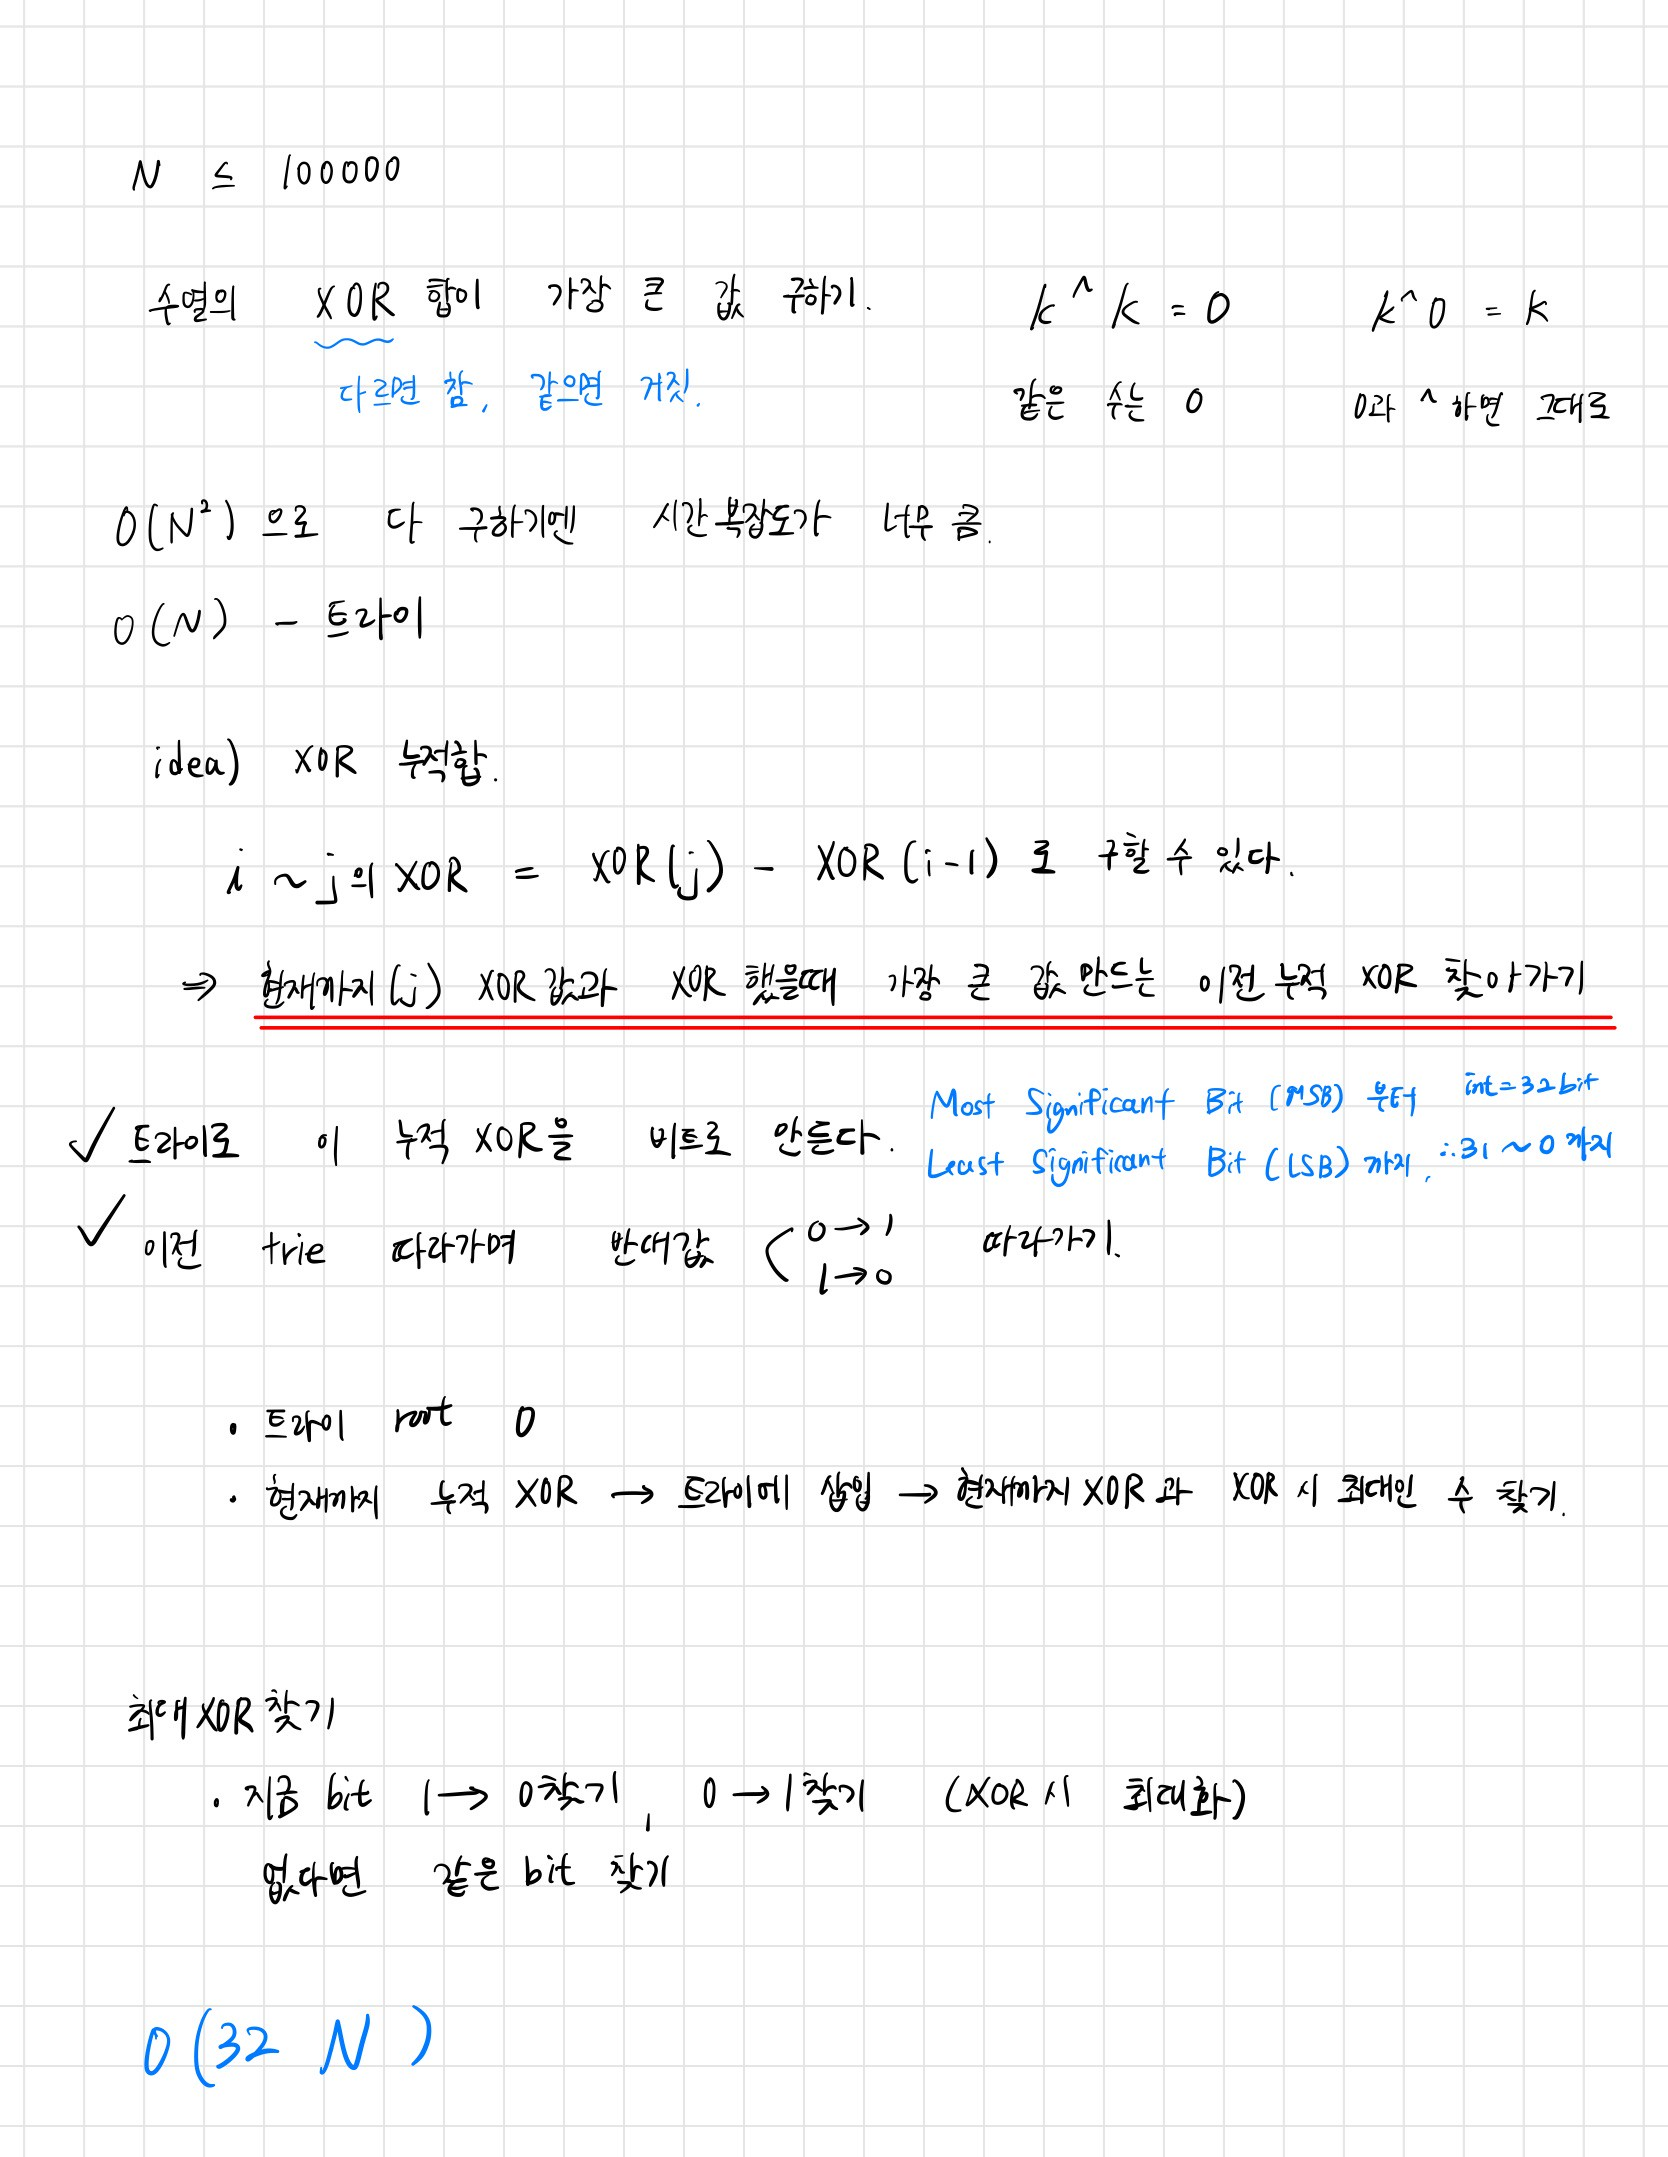 N ≤ 100000
수열의 XOR 합이 가장 큰 값 구하기.
k ^ k = 0
k^0 = k
다르면 참, 같으면 거짓.
같은 수는 0
0과 ^ 하면 그대로
O(N²) 으로 다 구하기엔 시간복잡도가 너무 큼.
O(N) - 트라이
idea) XOR 누적합.
i ~ j의 XOR = XOR(j) - XOR(i-1) 로 구할 수 있다.
⇒ 현재까지(j) XOR 값과 XOR 했을때 가장 큰 값 만드는 이전 누적 XOR 찾아가기
✓ 트라이로 이 누적 XOR을 비트로 만든다.
Most Significant Bit (MSB) 부터
int = 32bit
Least Significant Bit (LSB) 까지.
∴ 31 ~ 0 까지
✓ 이전 trie 따라가며 반대값 0 → 1
1 → 0
따라가기.
· 트라이 root 0
· 현재까지 누적 XOR → 트라이에 삽입 → 현재까지 XOR과 XOR 시 최대인 수 찾기.
최대 XOR 찾기
· 지금 bit 1 → 0 찾기, 0 → 1 찾기 (XOR 시 최대화)
없다면 같은 bit 찾기
O(32 N)